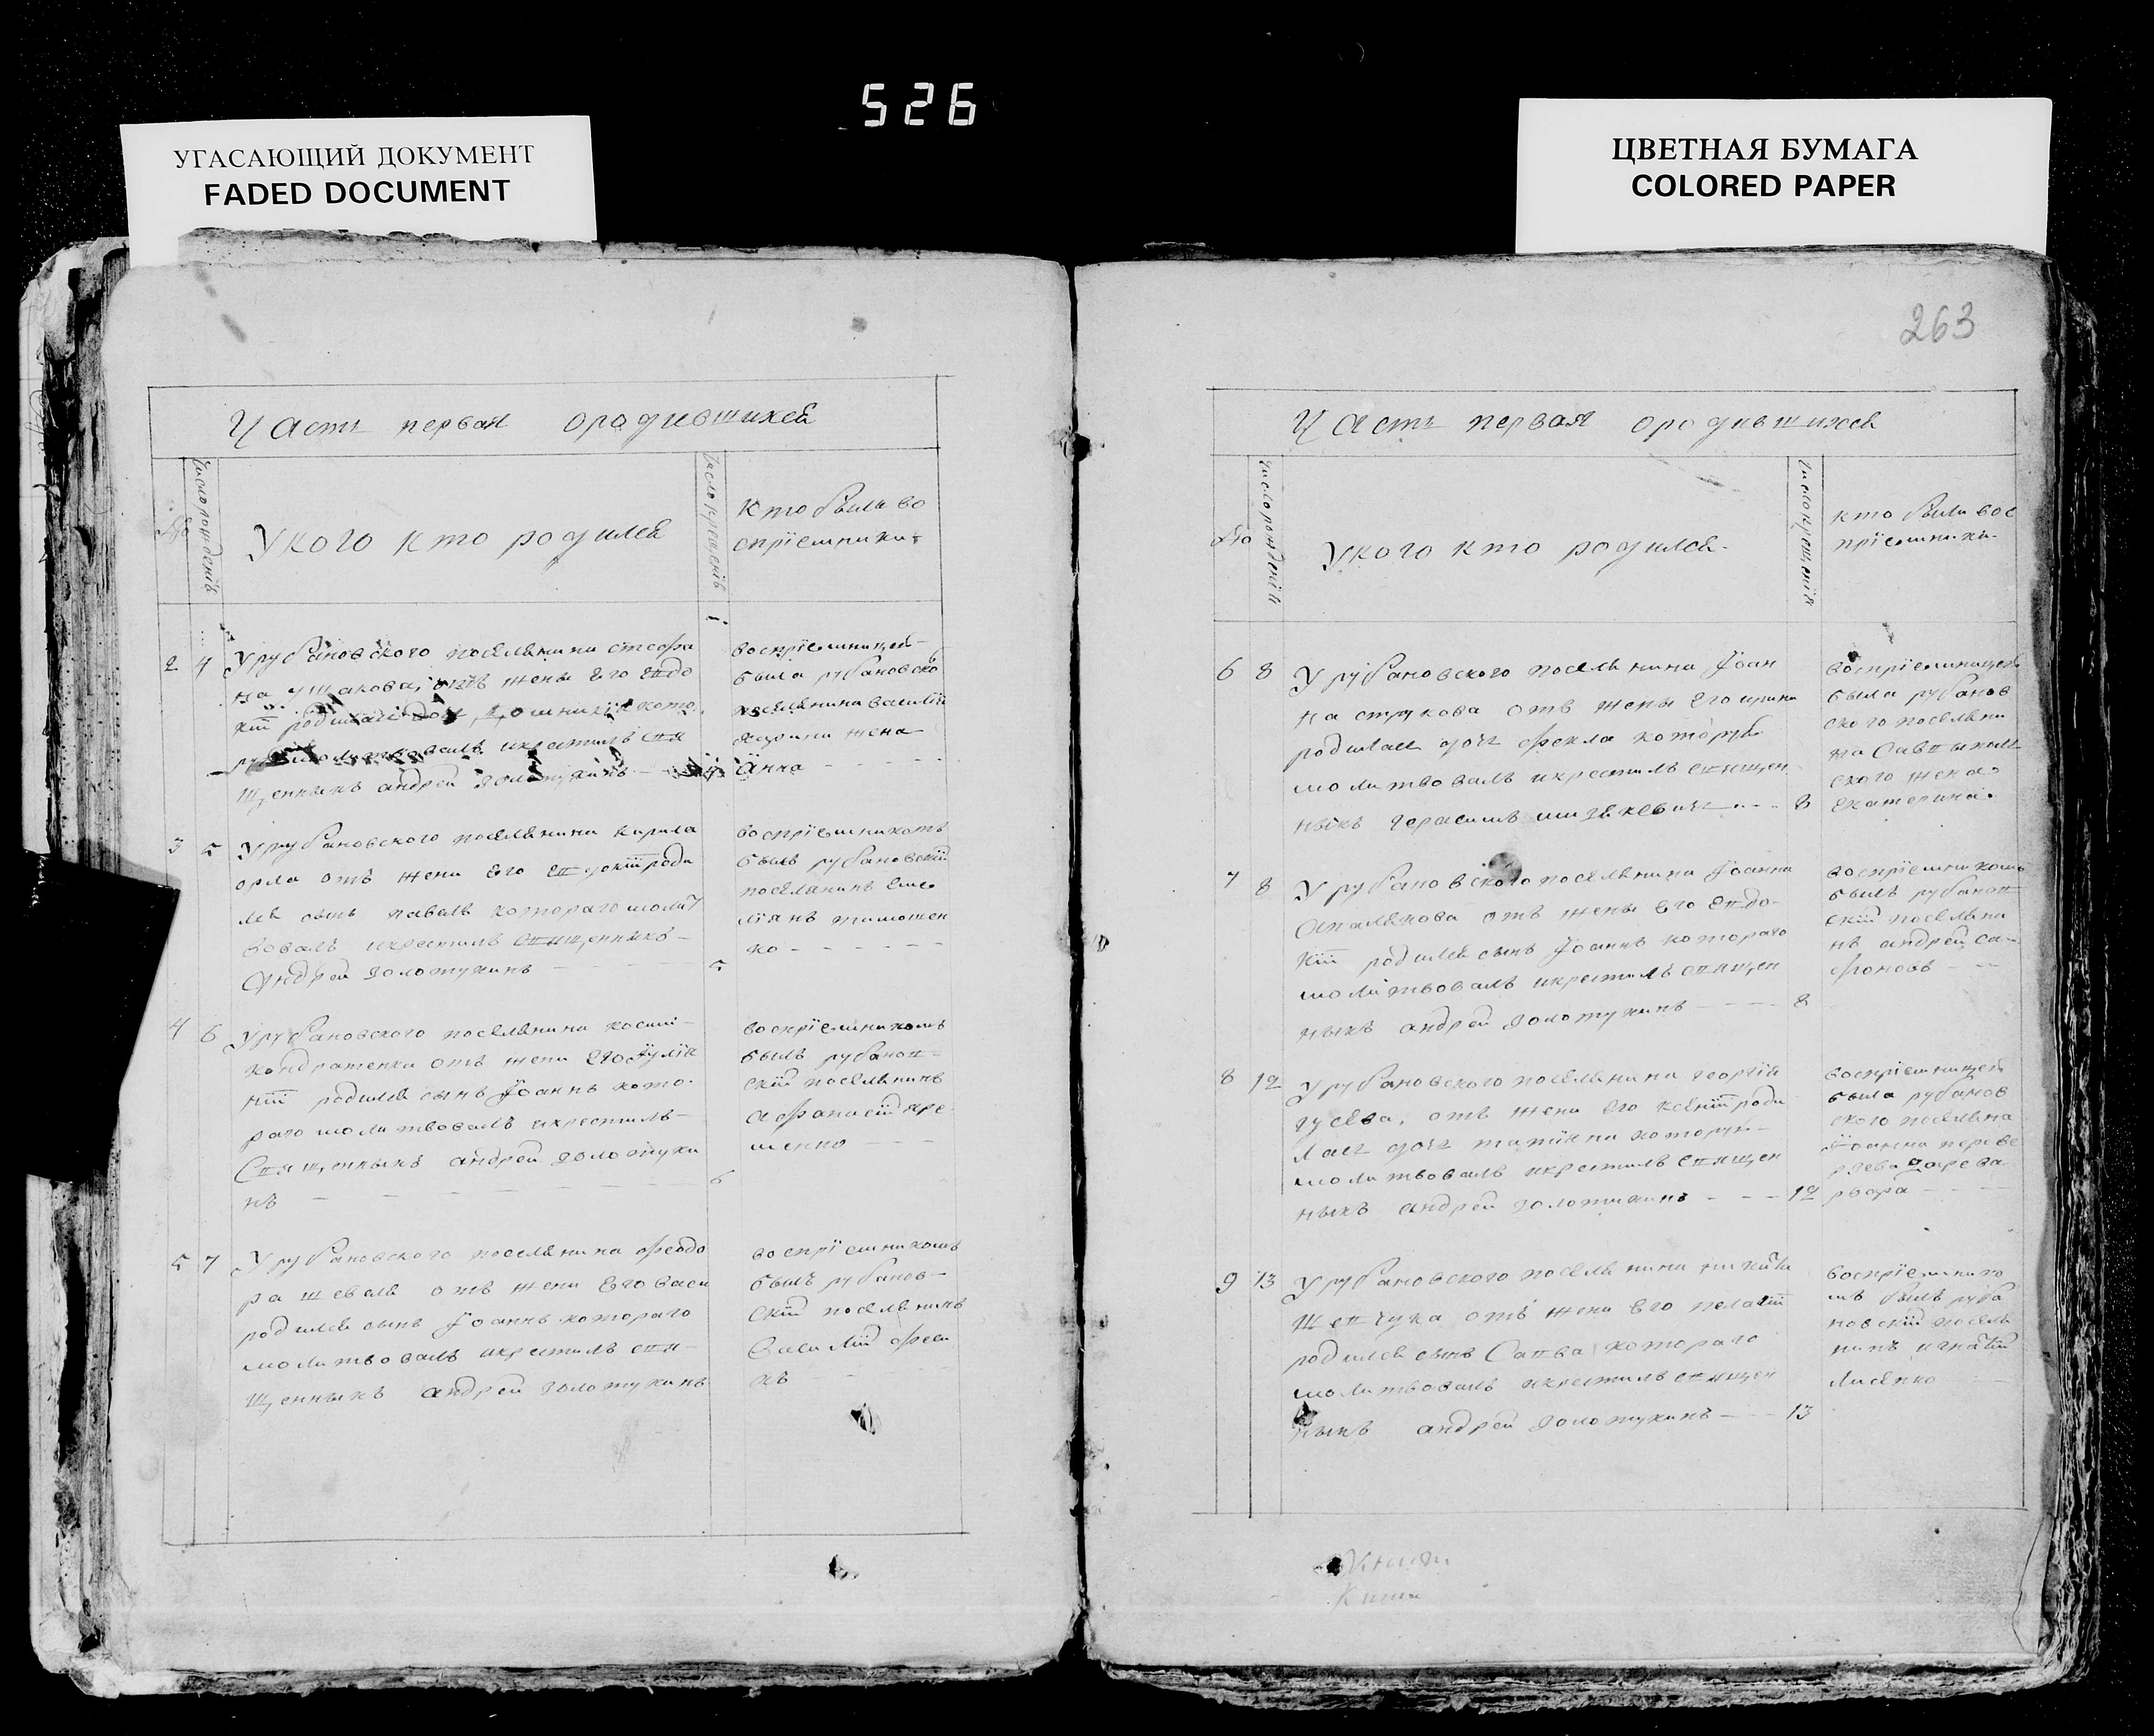 526
УГАСАЮЩИЙ ДОКУМЕНТ
FADED DOCUMENT
ЦВЕТНАЯ БУМАГА
COLORED PAPER
Часть первая о родившихся
№
число рождения
У кого кто родился
число крещения
Кто были во
спрiемники
2 4
У рубановского поселянина стефа
на ушакова, отъ жены Его Евдо
кiи родилась дочь которую
молитвовалъ и крестилъ свя
щенникъ андрей золотухинъ
воспрiемницей
была рубановско
поселянина василiя
жена
Анна
3 5
У рубановского поселянина кирила
орла отъ жени Его Евдокiи роди
лся сынъ павелъ котораго молит
вовалъ и крестилъ священникъ
Андрей золотухинъ
5
воспрiемникомъ
былъ рубановскiй
поселянинъ Еме
лiянъ тимошен
ко
4 6
У рубановского поселянина косми
кондратенка отъ жени Его Iулiа
нiи родился сынъ Iоаннъ кото
раго молитвовалъ и крестилъ
Священникъ андрей золотухи
нъ
6
воспрiемникомъ
былъ рубанов
скiй поселянинъ
Афанасiй яре
менко
5 7
У рубановского поселянина феодо
ра шевеля отъ жени Его васи
родился сынъ Iоаннъ котораго
молитвовалъ и крестилъ свя
щенникъ андрей золотухинъ
воспрiемникомъ
былъ рубанов
скiй поселянинъ
Василiй
263
Часть первая о родившихся
№
число рожденiя
У кого кто родился
число крещенiя
кто были вос
прiемники
6 8
У рубановского поселянина Iоан
на струкова отъ жены Его ирины
родилась дочь фекла которую
молитвовалъ и крестилъ священ
никъ герасимъ
8
воспрiемницей
была рубанов
ского поселяни
на
ского жена
Екатерина
7 8
У рубановского поселянина Iоанна
Апалькова отъ жены Его Евдо
кiи родился сынъ Iоаннъ котораго
молитвовалъ и крестилъ священ
никъ андрей золотухинъ
8
воспрiемникомъ
былъ рубанов
скiй поселяни
нъ андрей са
фоновъ
8 12
У рубановского поселянина георгiя
гусева, отъ жени Его ксенiи роди
лась дочь татiяна которую
молитвовалъ и крестилъ священ
никъ андрей золотухинъ
12
воспрiемницей
была рубанов
ского поселянина
Iоанна переве
рзева
рвара
9 13
У рубановского поселянина никиты
шевчука отъ жени Его пелагiи
родился сынъ Савва котораго
молитвовалъ и крестилъ священ
никъ андрей золотухинъ
13
воспрiемнико
мъ былъ руба
новскiй поселя
нинъ игнатiй
Лисенко